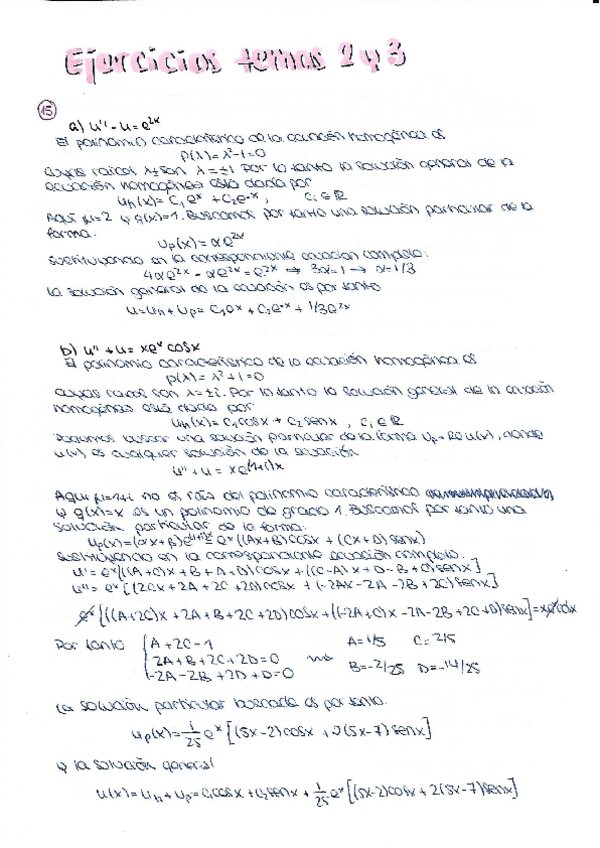 Ejercicios temas 2 y 3
15
a) u'' - u = e^{2x}
El polinomio característico de la ecuación homogénea es
p(λ) = λ² - 1 = 0
cuyas raíces son λ = ±1. Por lo tanto la solución general de la
ecuación homogénea está dada por
u_h(x) = C₁e^x + C₂e^{-x}, c_i ∈ ℝ
Aquí μ=2 y q(x)=1. Buscamos por tanto una solución particular de la
forma:
u_p(x) = αe^{2x}
Sustituyendo en la correspondiente ecuación completa:
4αe^{2x} - αe^{2x} = e^{2x} → 3α = 1 → α = 1/3
La solución general de la ecuación es por tanto
u = u_h + u_p = C₁e^x + C₂e^{-x} + 1/3e^{2x}
b) u'' + u = xe^x cosx
El polinomio característico de la ecuación homogénea es
p(λ) = λ² + 1 = 0
cuyas raíces son λ = ±i. Por lo tanto la solución general de la ecuación
homogénea está dada por
u_h(x) = C₁cosx + C₂senx, c_i ∈ ℝ
Podemos buscar una solución particular de la forma u_p = Re u(x), donde
u(x) es cualquier solución de la ecuación
u'' + u = xe^{(1+i)x}
Aquí μ=1+i no es raíz del polinomio característico
y q(x)=x es un polinomio de grado 1. Buscamos por tanto una
solución particular de la forma:
u_p(x) = (αx+β)e^{(1+i)x} e^x((Ax+B)cosx + (Cx+D)senx)
Sustituyendo en la correspondiente ecuación completa:
u' = e^x[((A+C)x + B + A + D)cosx + ((C-A)x + D - B + C)senx]
u'' = e^x[(2Cx + 2A + 2C + 2D)cosx + (-2Ax - 2A - 2B + 2C)senx]
e^x[((A+2C)x + 2A + B + 2C + 2D)cosx + ((-2A+C)x - 2A - 2B + 2C + D)senx] = xe^x cosx
Por tanto { A + 2C = 1 A = 1/5 C = 2/5
2A + B + 2C + 2D = 0
-2A - 2B + 2D + D = 0 B = -2/25 D = -14/25
La solución particular buscada es por tanto
u_p(x) = 1/25 e^x [(5x-2)cosx + 2(5x-7)senx]
y la solución general
u(x) = u_h + u_p = C₁cosx + C₂senx + 1/25 e^x [(5x-2)cosx + 2(5x-7)senx]